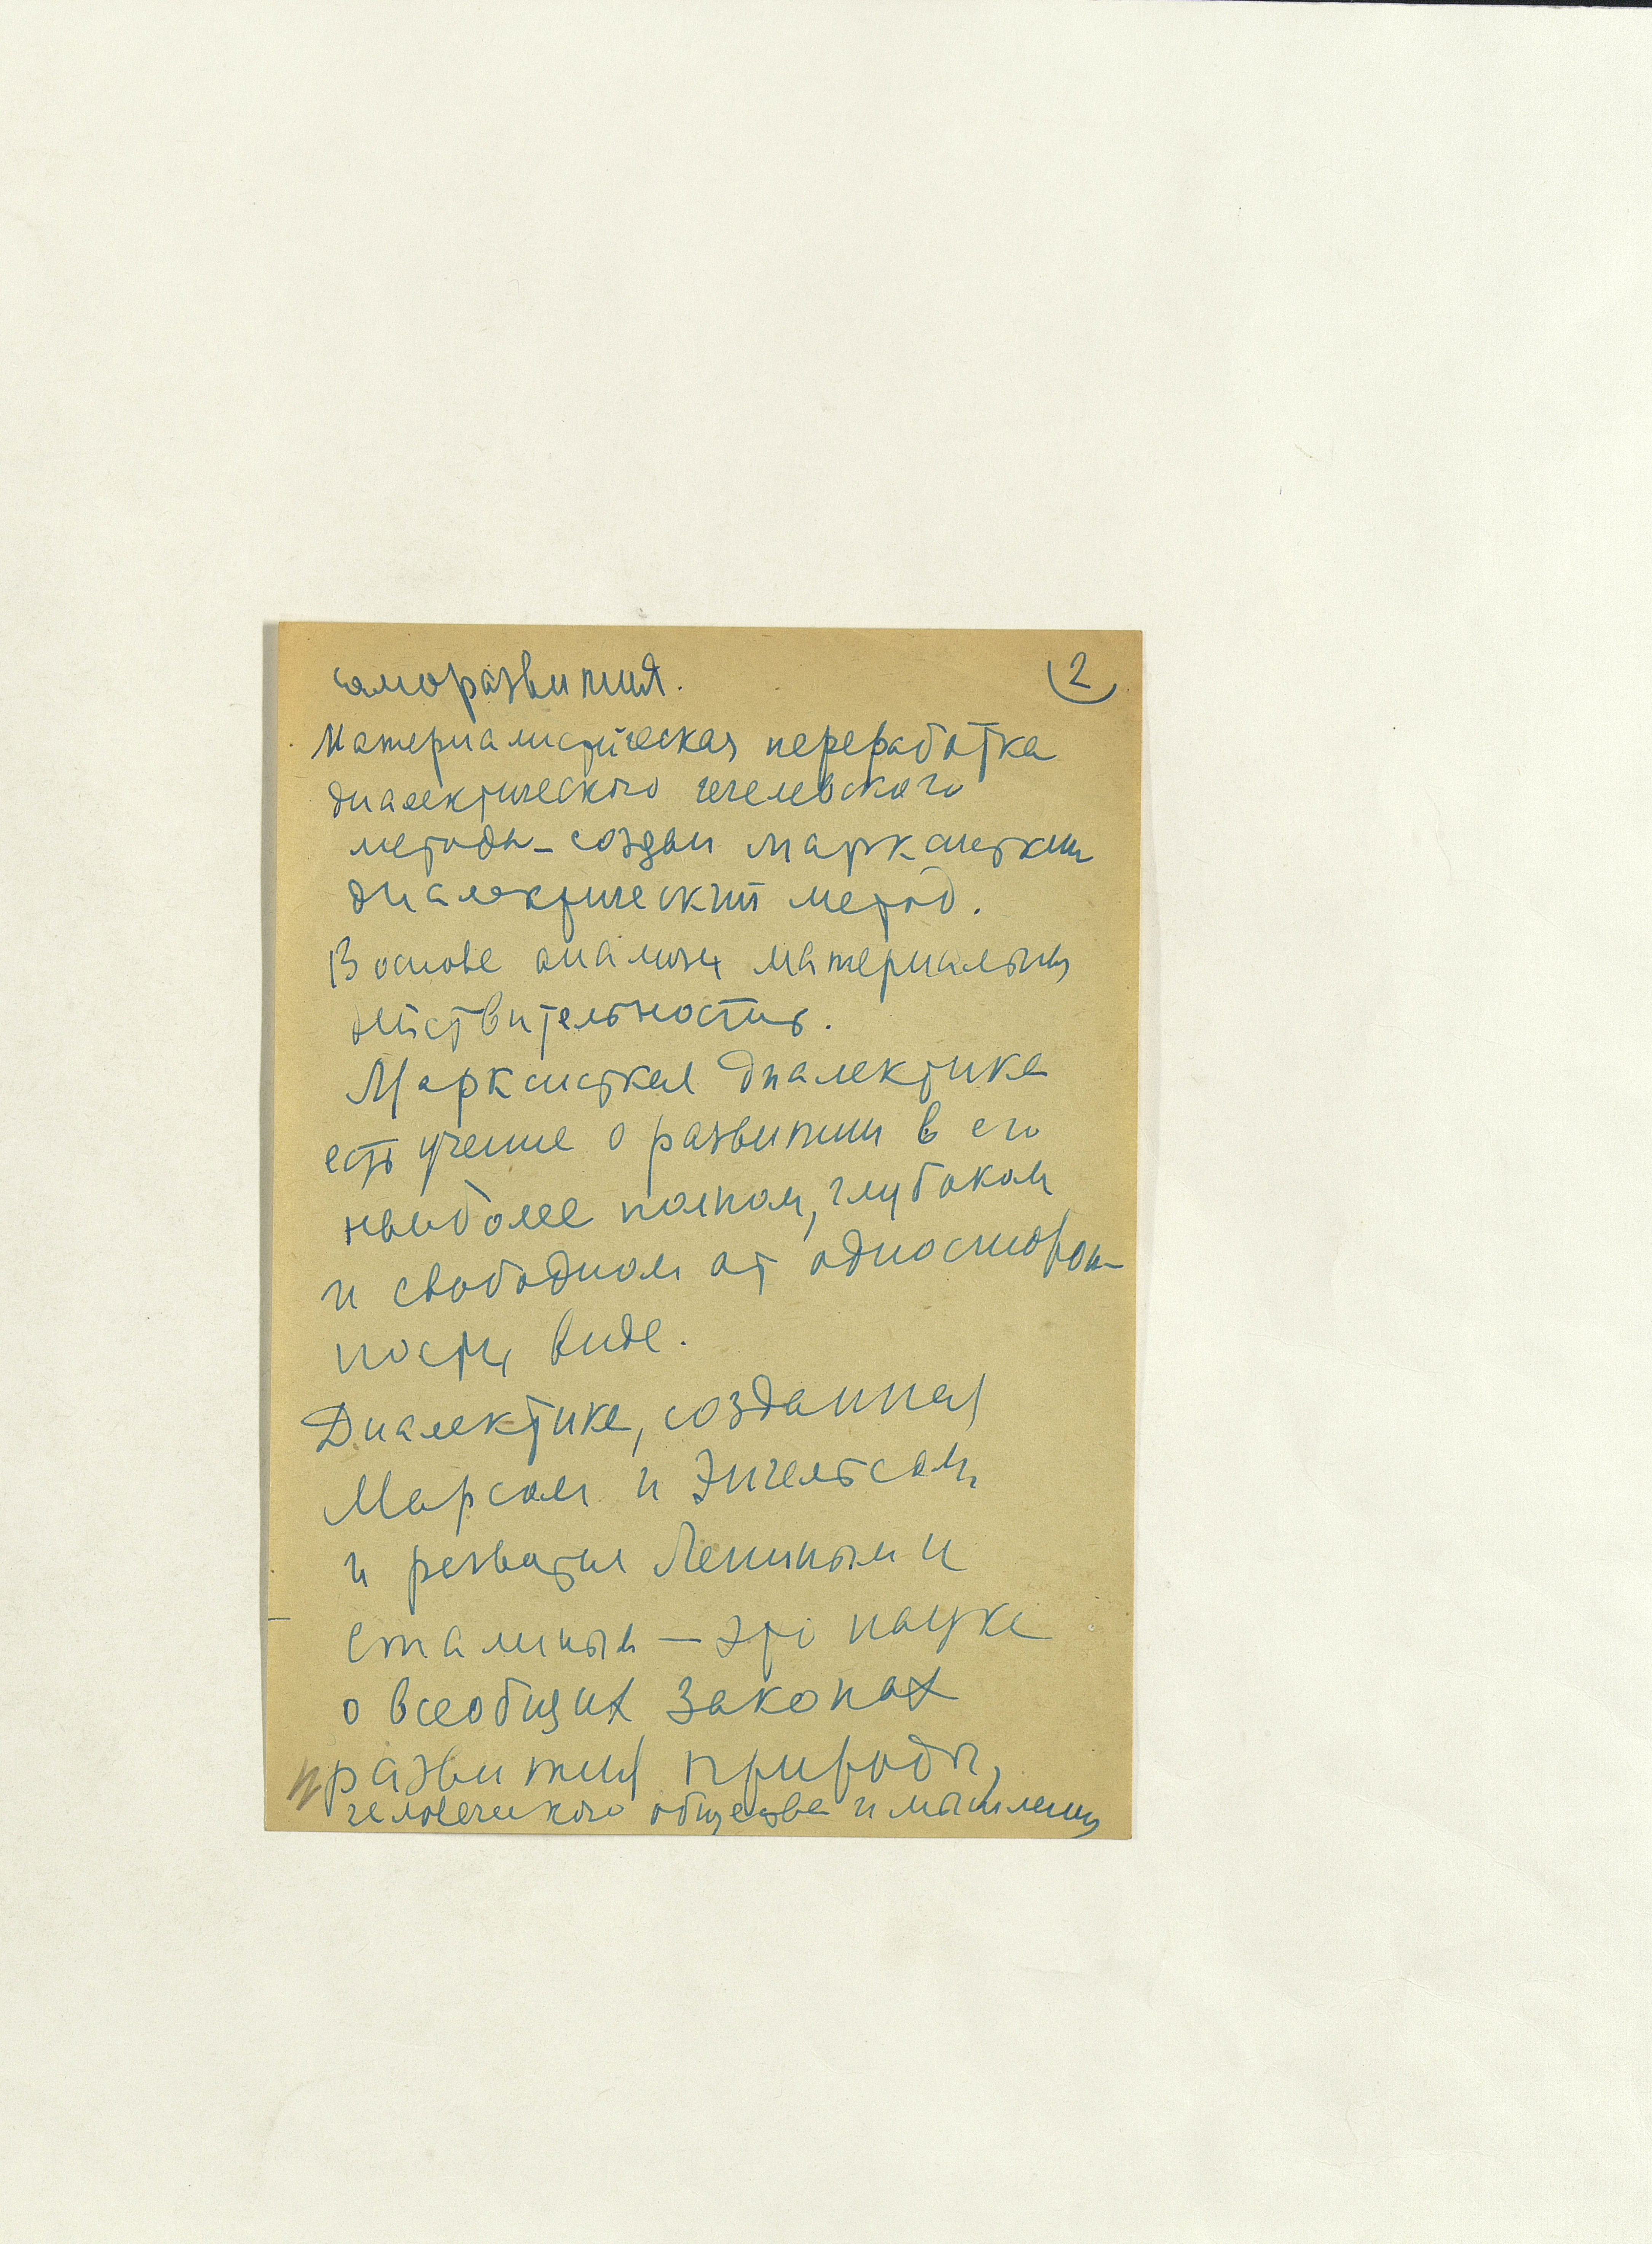 саморазвития. 2
Материалистическая переработка
диалектического гегелевского
метода – создан марксисткий
диалектический метод.
В основе анализ материальных
действительность.
Марксисткая диалектика
есть учение о развитии в его
наиболее полном, глубоком
и свободном от односторон-
ности виде.
Диалектика, созданная
Марсом и Энгельсом
и развитая Лениным и
Сталиным – это наука
о всеобщих законах
развития природы,
человеческого общества и мышления